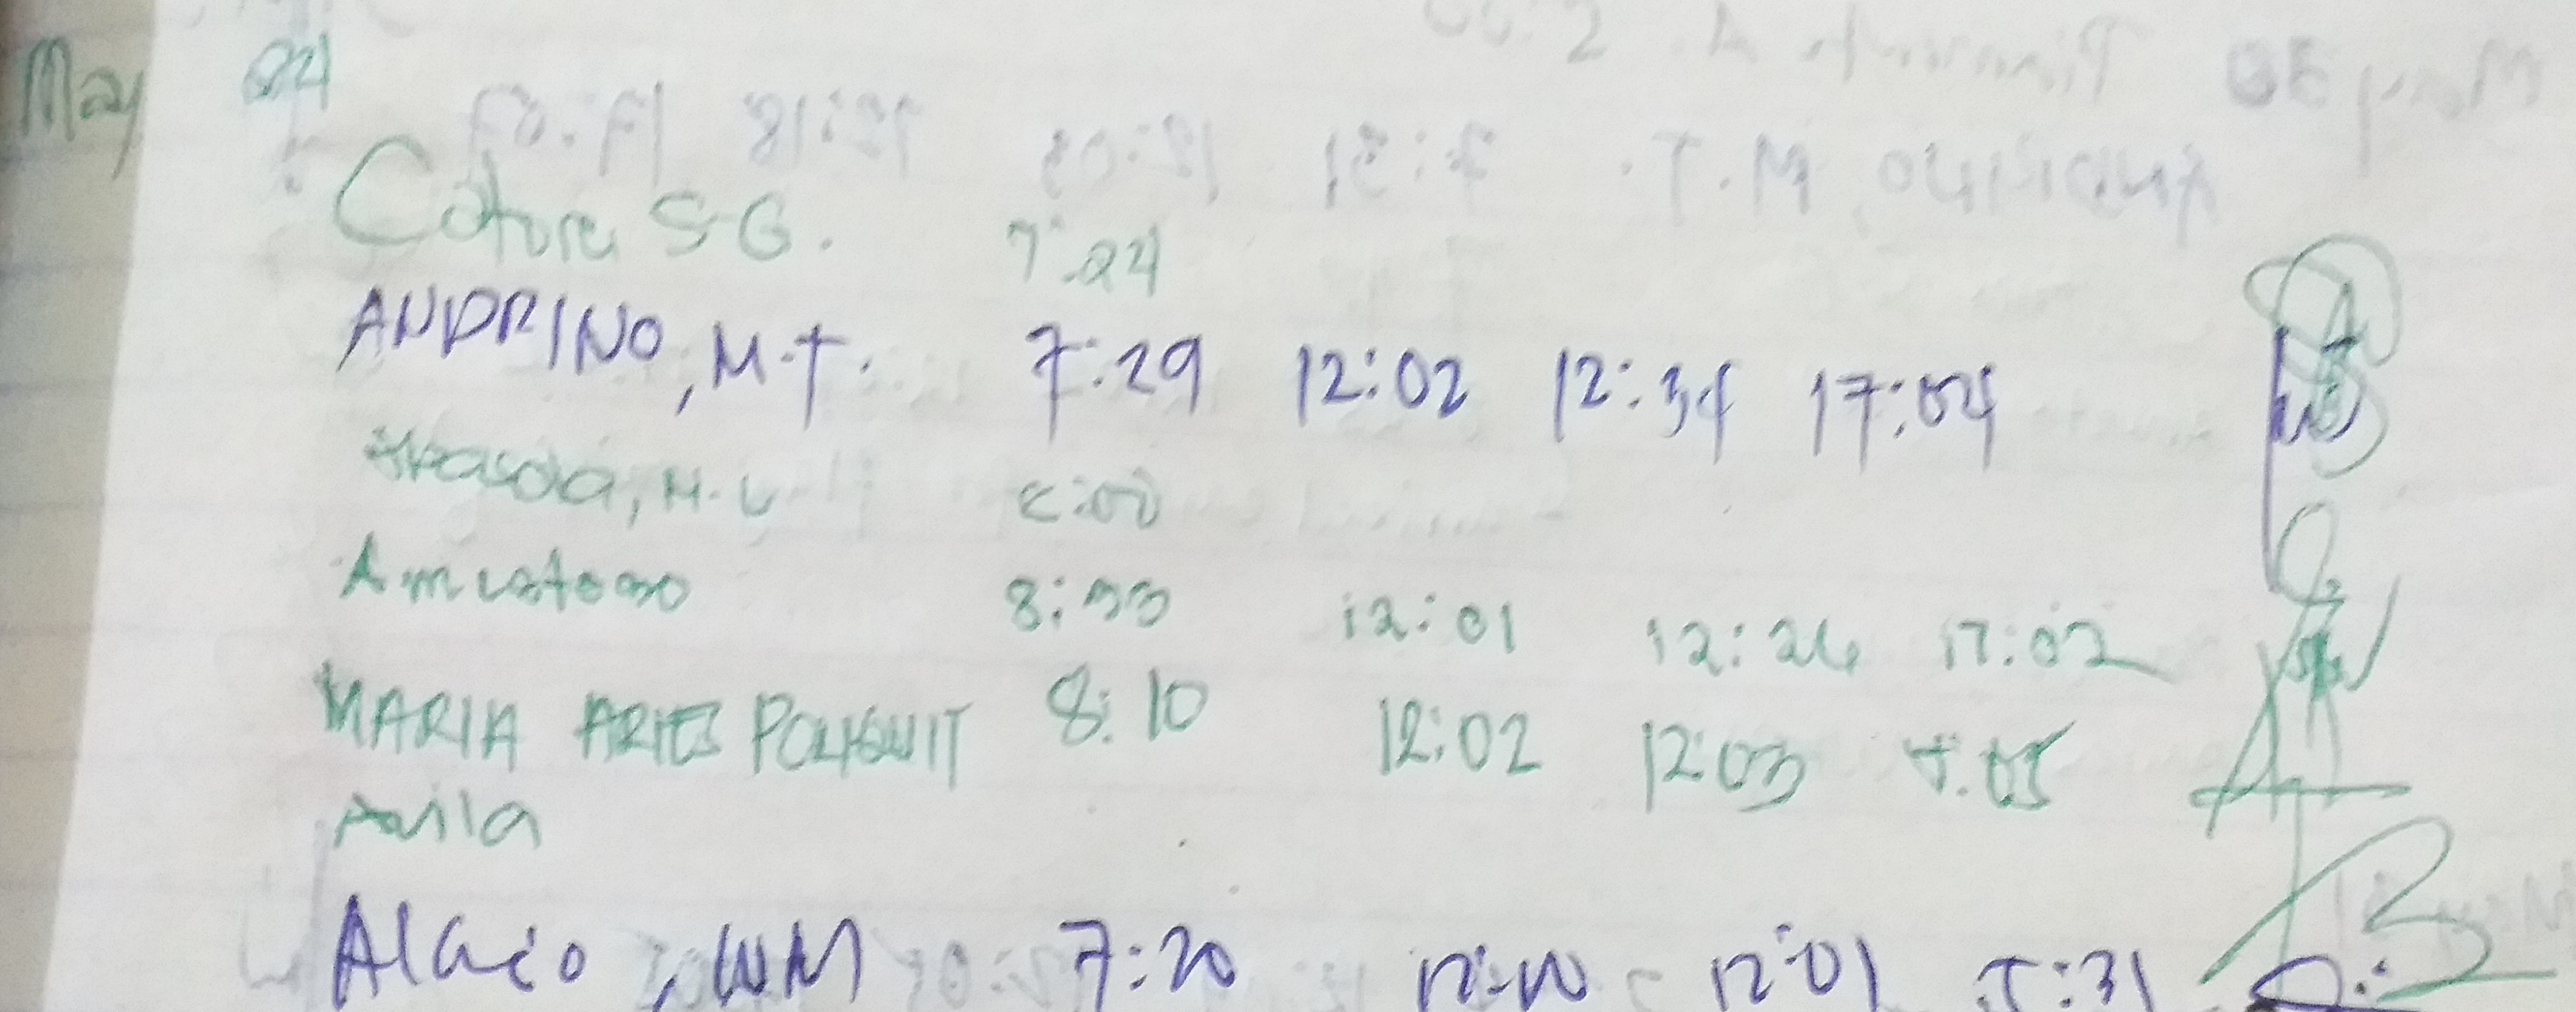 May 24
Cotore S-G. 7:24
ANDRINO, M.T. 7:29 12:02 12:34 17:04
M.L 8:00
Amistoso 8:33 12:01 12:26 17:02
MARIA ARIES POLIQUIT 8:10 12:02 12:03 5:05
Avila
WM 7:20 12:00 12:01 5:31